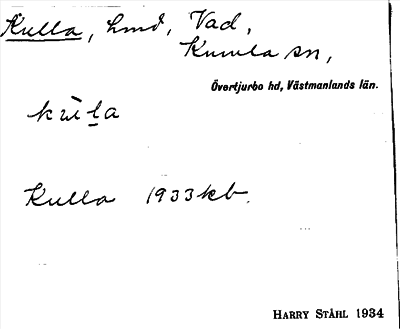 Kulla, hmd, Vad,
Kumla sn,
Övertjurbo hd, Västmanlands län.
kùl̠a
Kulla 1933 kb.
HARRY STÅHL 1934